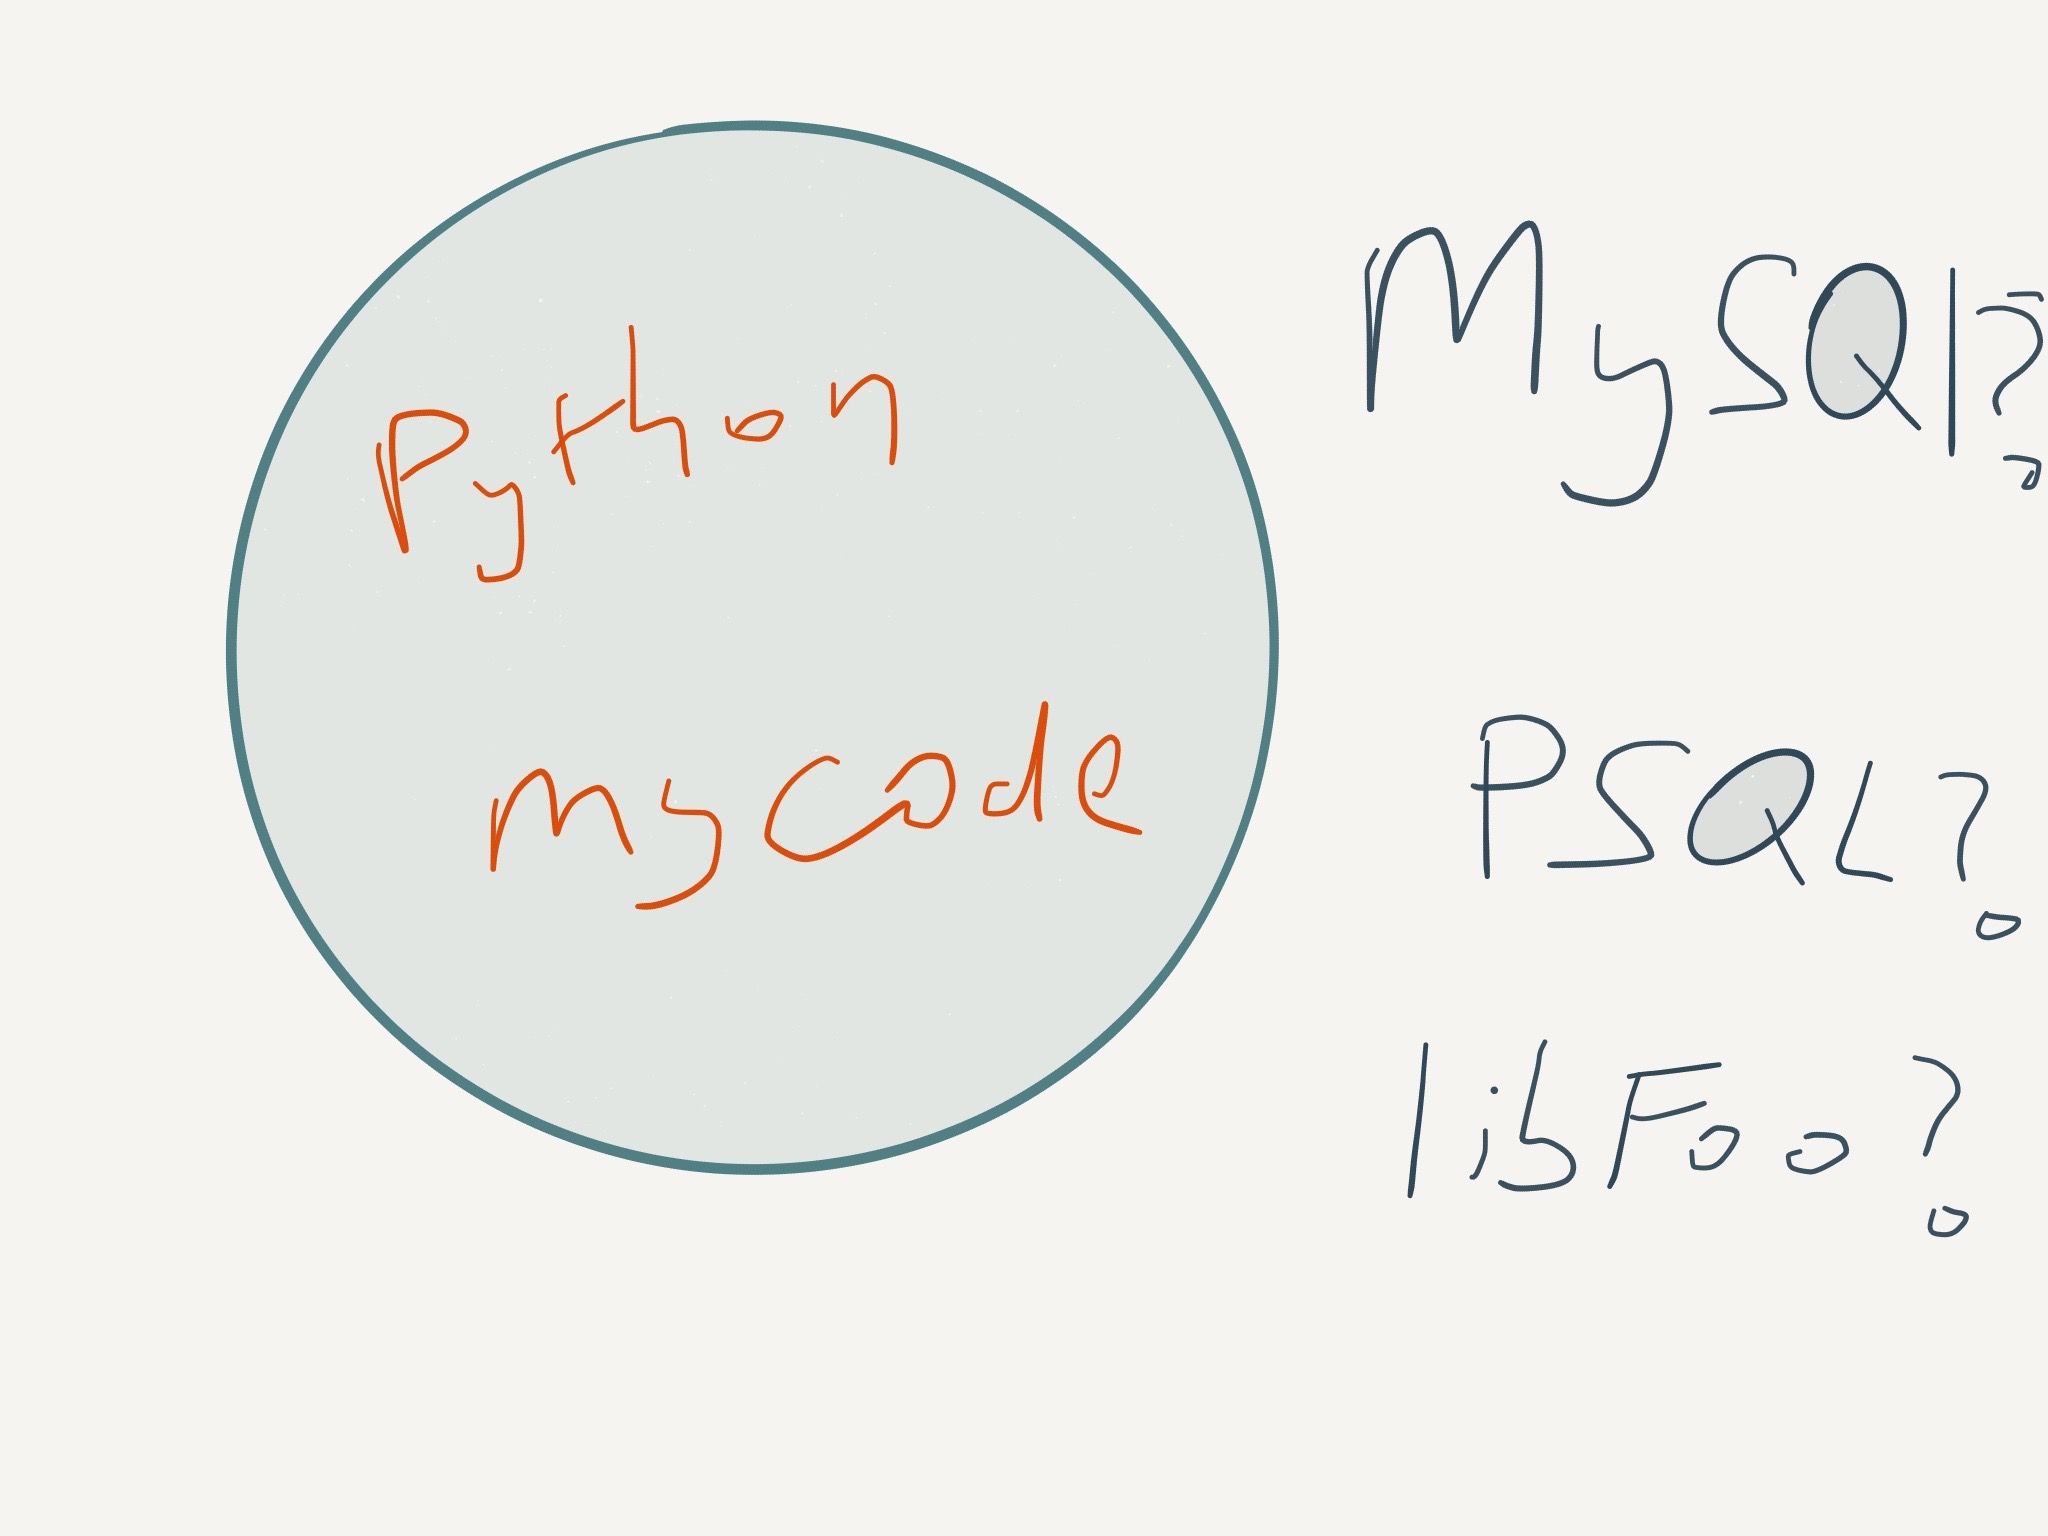 Python
my code
MySQl?
PSQL?
libFoo?